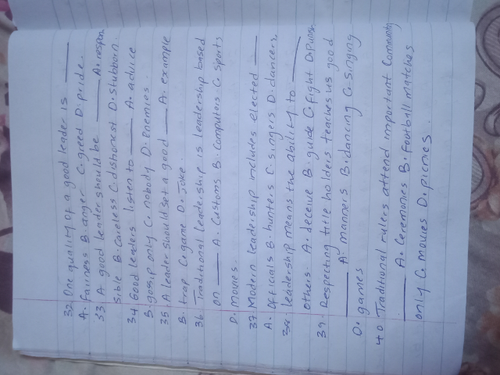 32. One quality of a good leader is ____
A. fairness B. anger C. greed D. pride.
33 A good leader should be ____ A. respon
sible B. careless C. dishonest D. stubborn.
34 Good leaders listen to ____ A. advice
B. gossip only C. nobody D. Enemies
35 A leader should set a good ____ A. example
B. trap C. game D. Joke.
36 Traditional leadership is leadership based
on ____ A. Customs B. Computers C. Sports
D. movies
37 Modern leadership includes elected ____
A. Officials B. hunters C. singers D. dancers,
38 leadership means the ability to ____
others A. deceive B. guide C. fight D. Punish
39 Respecting title holders teaches us good
____ A. manners B. dancing C. singing
D. games
40 Traditional rulers attend important Community
____ A. Ceremonies B. Football matches
only C. movies D. picnics.